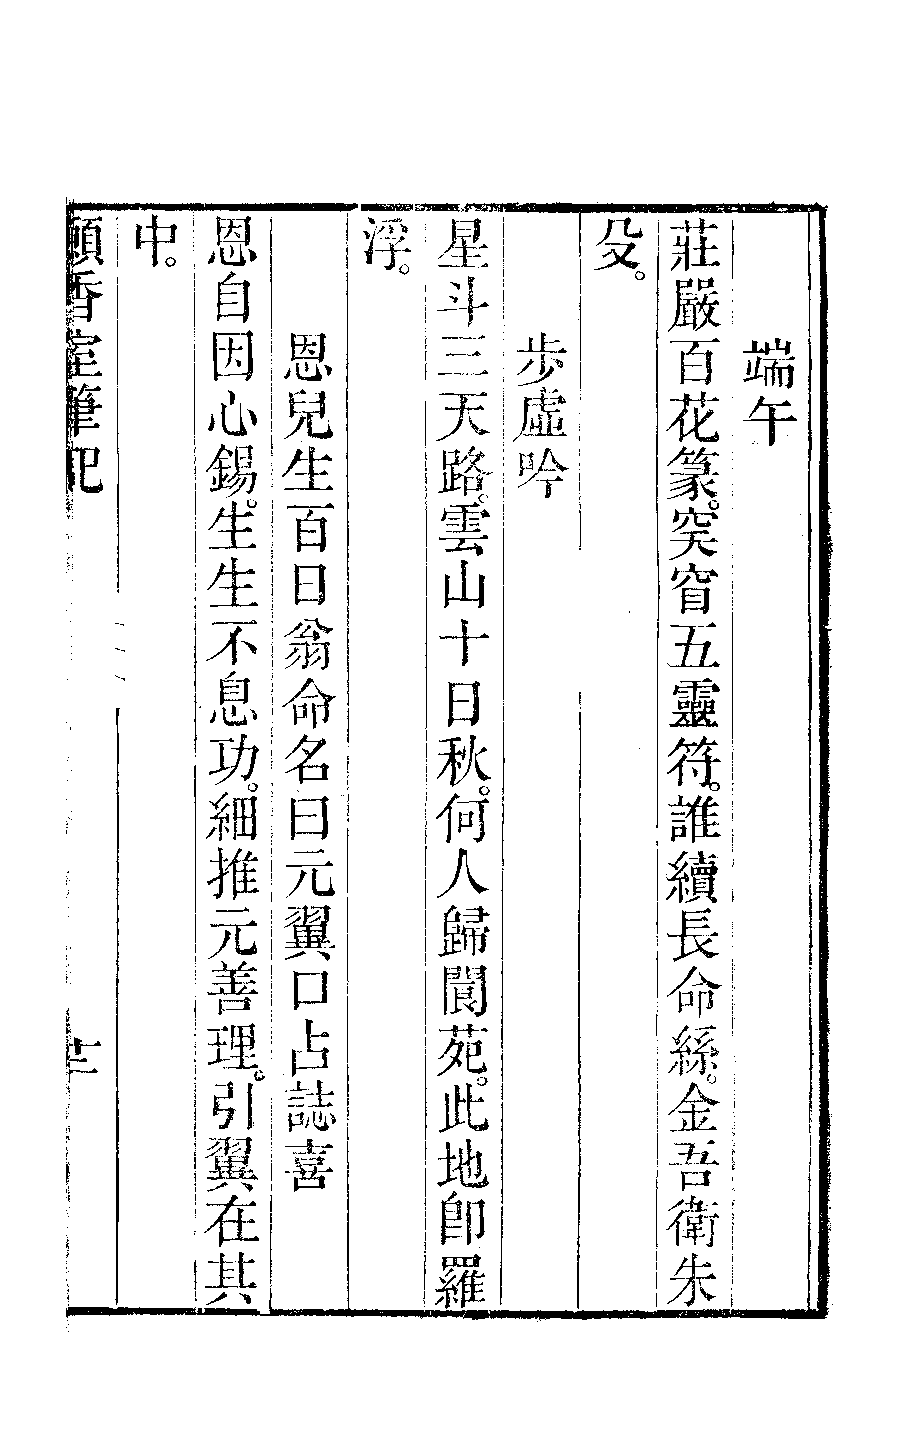 端午
莊嚴百花篆。窔窅五靈符。誰續長命絲。金吾衛朱
殳。
步虛吟
星斗三天路。雲山十日秋。何人歸閬苑。此地卽羅
浮。
恩兒生百日翁命名曰元翼口占誌喜
恩自因心錫。生生不息功。細推元善理。引翼在其
中。
香室筆記